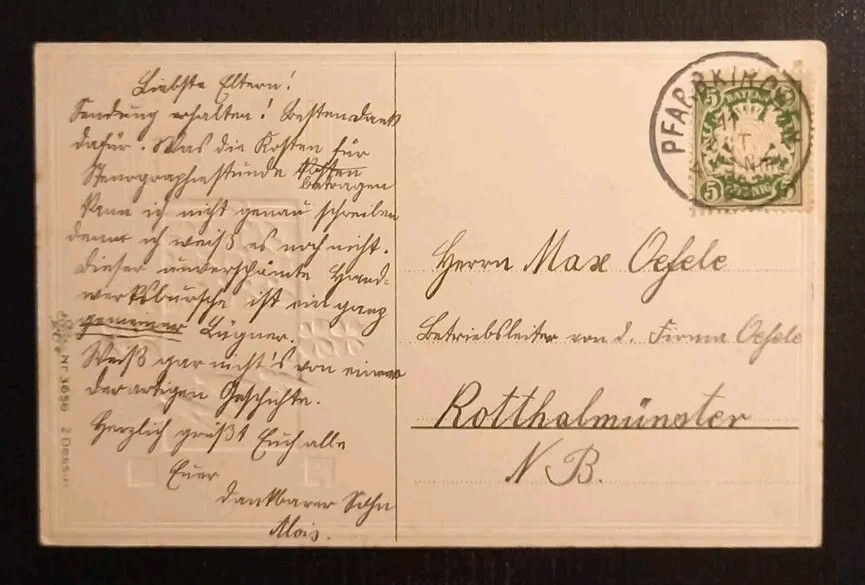 Liebste Eltern!
Sendung erhalten! Besten Dank
dafür. Was die Kosten für
Stenographiestunde kosten
betragen
kann ich nicht genau schreiben
denn ich weiß es noch nicht.
Dieser unverschämte Hand-
werksbursche ist ein ganz
gemeiner Lügner.
Weiß gar nicht's von einer
derartigen Geschichte.
Herzlich grüßt Euch alle
Euer
dankbarer Sohn
Alois.
Nr 3656 2 Dessin
PFARRKIRCHEN
11
5 BAYERN 5
5 PFENNIG 5
Herrn Max Oefele
Betriebsleiter von d. Firma Oefele
Rotthalmünster
N B.